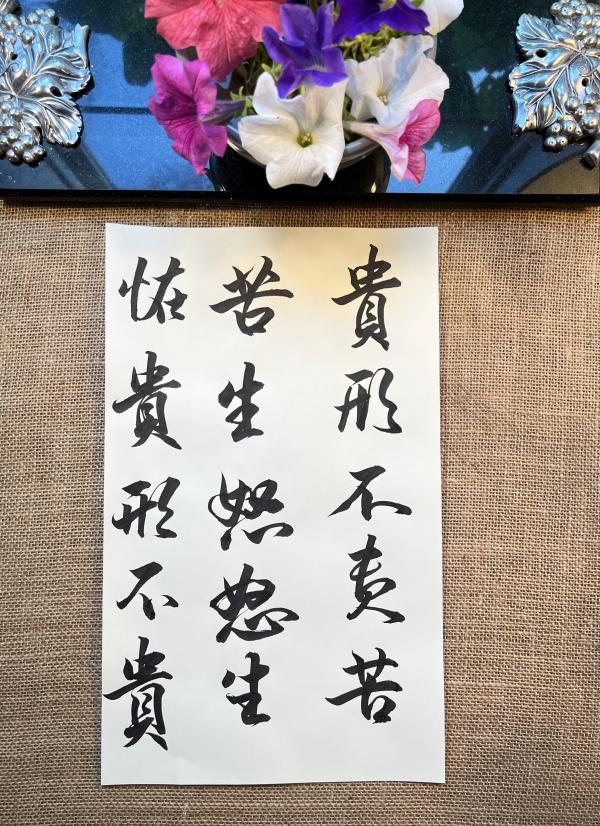 貴形不责苦
苦生怒恕生
恠貴形不貴